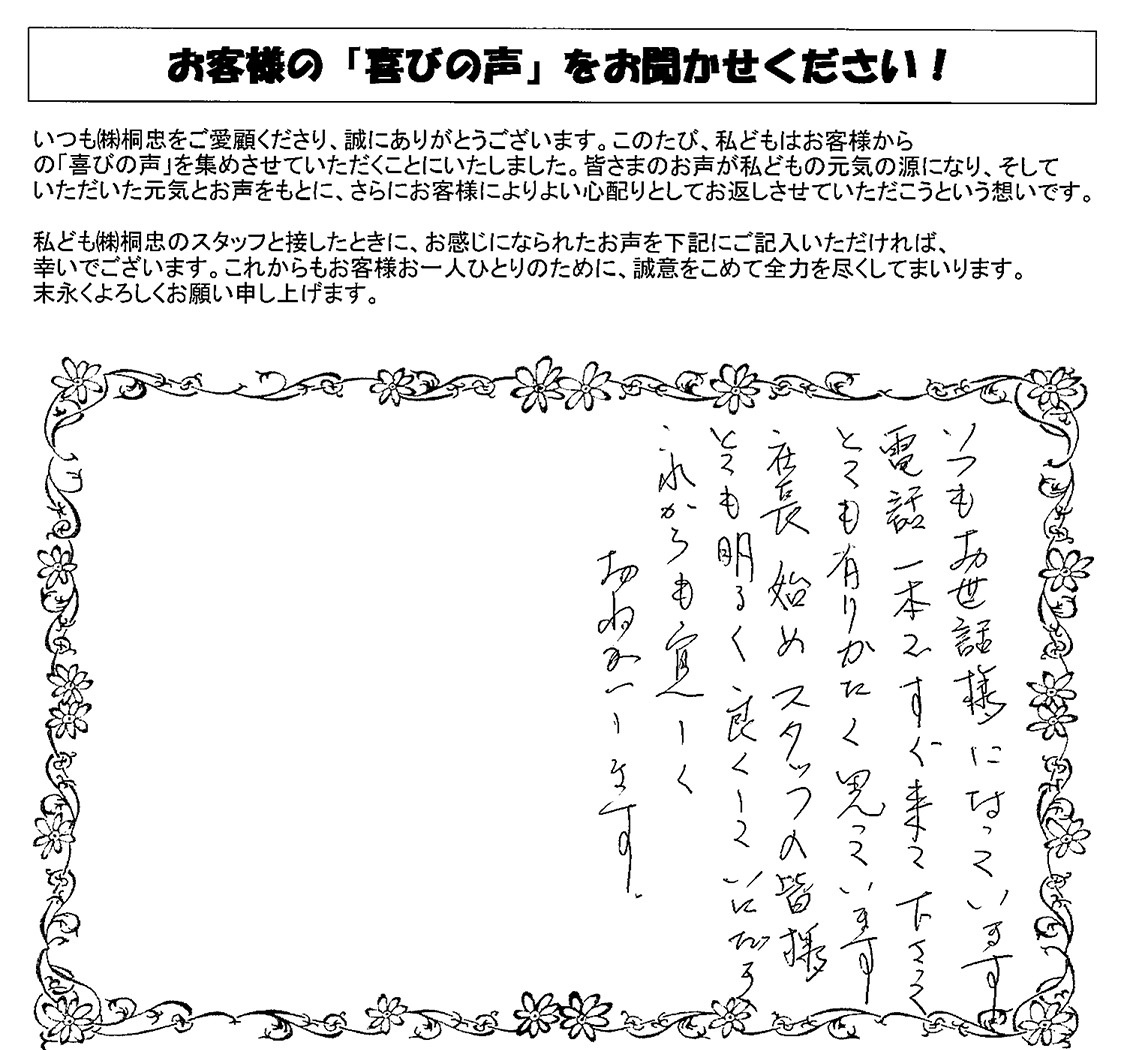 お客様の「喜びの声」をお聞かせください！
いつも㈱桐忠をご愛顧くださり、誠にありがとうございます。このたび、私どもはお客様から
の「喜びの声」を集めさせていただくことにいたしました。皆さまのお声が私どもの元気の源になり、そして
いただいた元気とお声をもとに、さらにお客様によりよい心配りとしてお返しさせていただこうという想いです。
私ども㈱桐忠のスタッフと接したときに、お感じになられたお声を下記にご記入いただければ、
幸いでございます。これからもお客様お一人ひとりのために、誠意をこめて全力を尽くしてまいります。
末永くよろしくお願い申し上げます。
いつもお世話様になっています
電話一本ですぐ来て下さって
とても有りがたく思っています
店長始めスタッフの皆様
とても明るく良くしていただき
これからも宜しく
おねがいします。